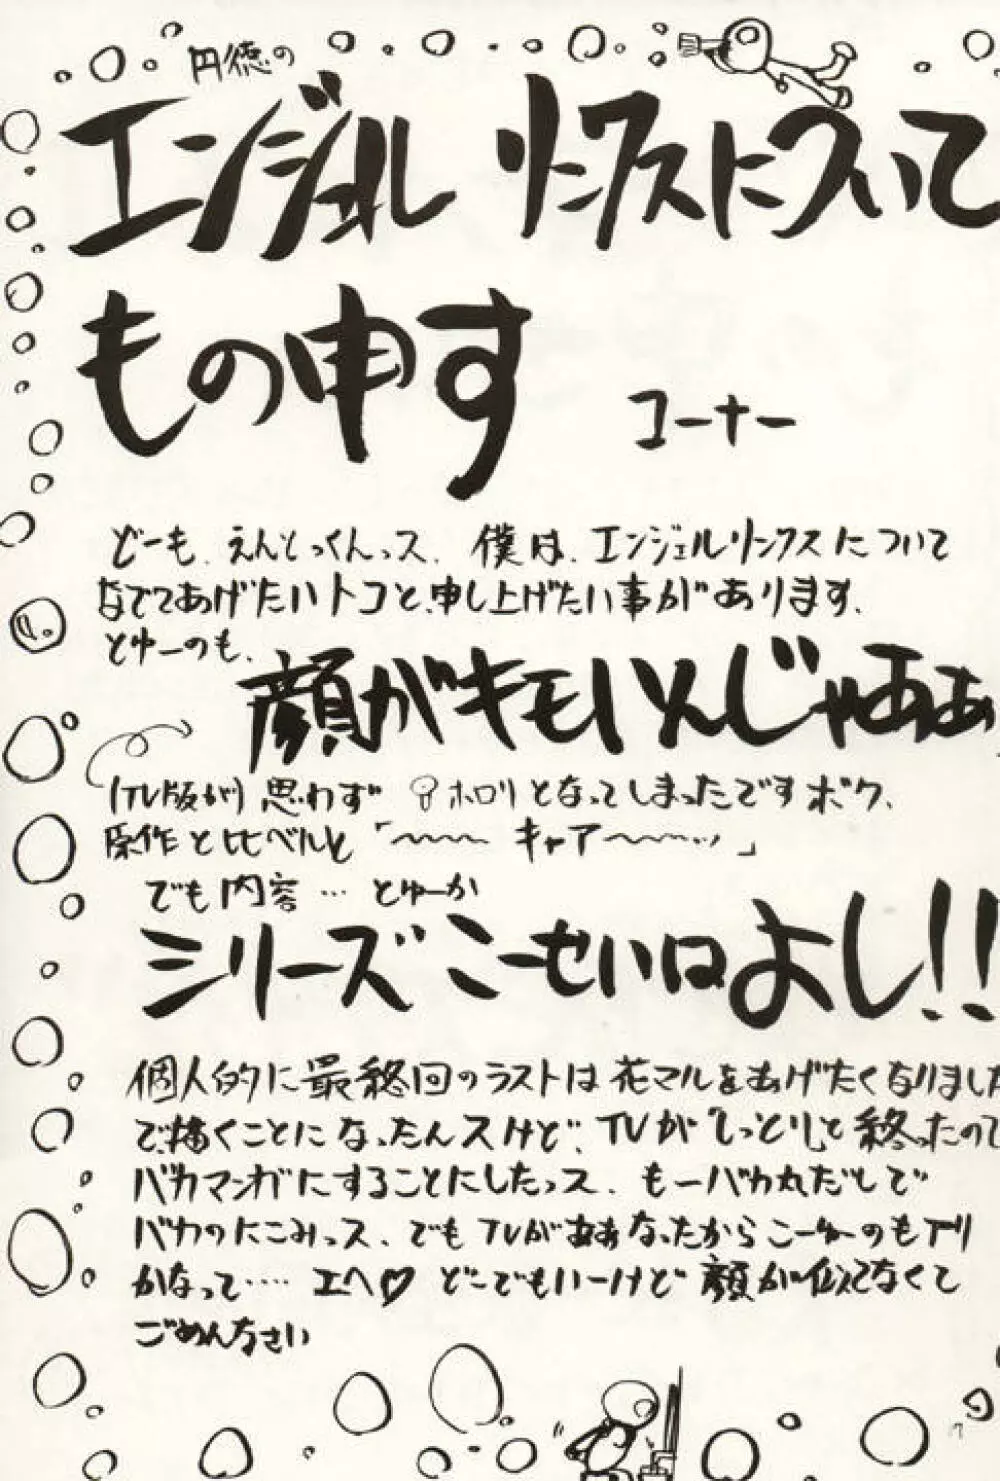 円徳の
エンジェルリンクスについて
もの申す コーナー
どーも、えんとっくんっス、僕は、エンジェルリンクスについて
なでてあげたいトコと、申し上げたい事があります、
とゆーのも、
顔がキモいんじゃああ
(TV版が) 思わず ホロリとなってしまったですボク、
原作と比べると「〜〜〜 キャア〜〜〜…」
でも内容… とゆーか
シリーズこーせいはよし!!
個人的に最終回のラストは花マルをあげたくなりました
で、描くことになったんスけど、TVが「しっとり」と終ったので
バカマンガにすることにしたっス、もーバカ丸だしで
バカのにこみっス、でもTVがああなったからこーゆーのもアリ
かなって…… エヘ♡ どーでもいーけど顔が似てなくて
ごめんなさい